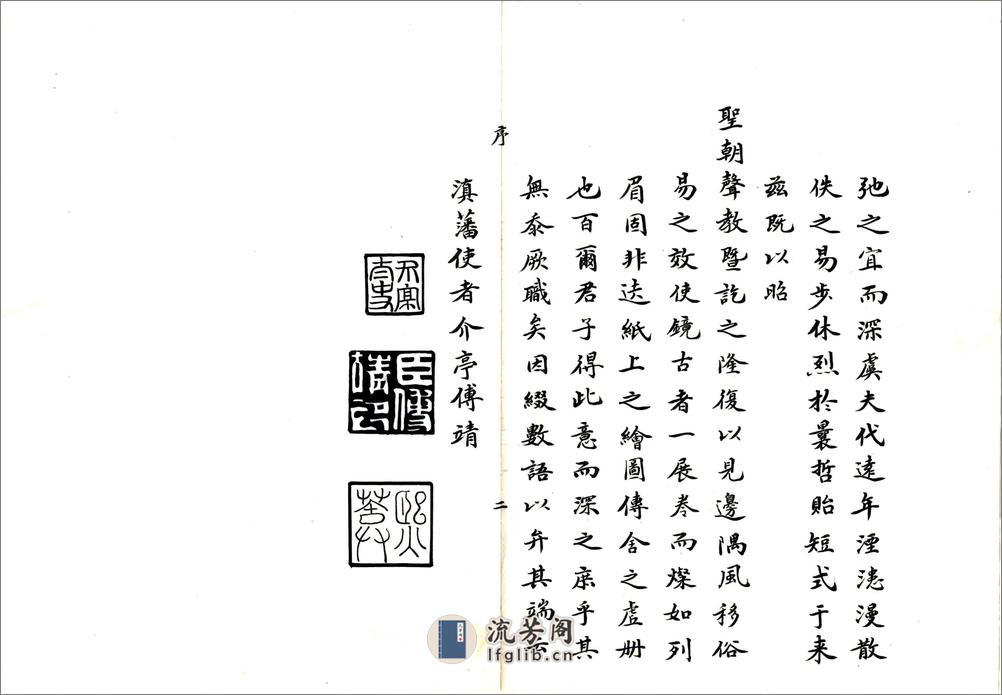 弛之宜而深虞夫代遠年湮漶漫散
佚之易步休烈於曩哲貽短式于来
兹既以昭
聖朝聲教暨訖之隆復以見邊隅風移俗
易之效使鏡古者一展卷而燦如列
眉固非迭紙上之繪圖傳舍之虛册
也百爾君子得此意而深之庶乎其
無忝厥職矣因綴數語以弁其端云
滇藩使者介亭傅靖
序
二
臣傅
靖印
流芳阁
lfglib.cn